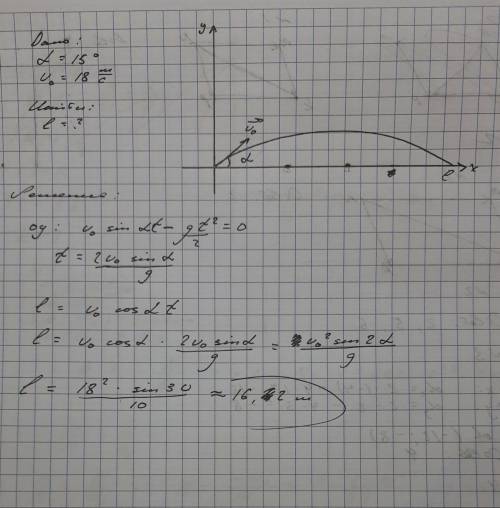 Дано:
α = 15°
v₀ = 18 м/с
Найти:
l = ?
y
v₀
α
l
x
Решение:
oy: v₀ sin αt − gt²/2 = 0
t = 2v₀ sin α/g
l = v₀ cos α t
l = v₀ cos α · 2v₀ sin α/g = v₀² sin 2α/g
l = 18² · sin 30/10 ≈ 16,2 м